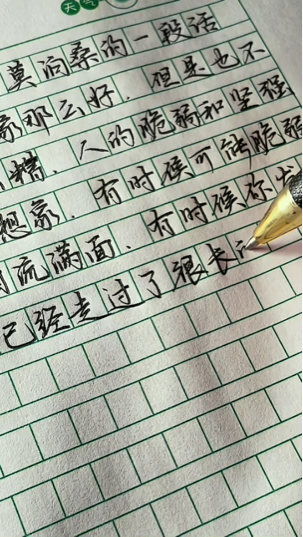 天气
莫泊桑的一段话
那么好.但是也不
糟.人的脆弱和坚强
想象.有时候可能脆弱
流满面.有时候你
已经走过了很长